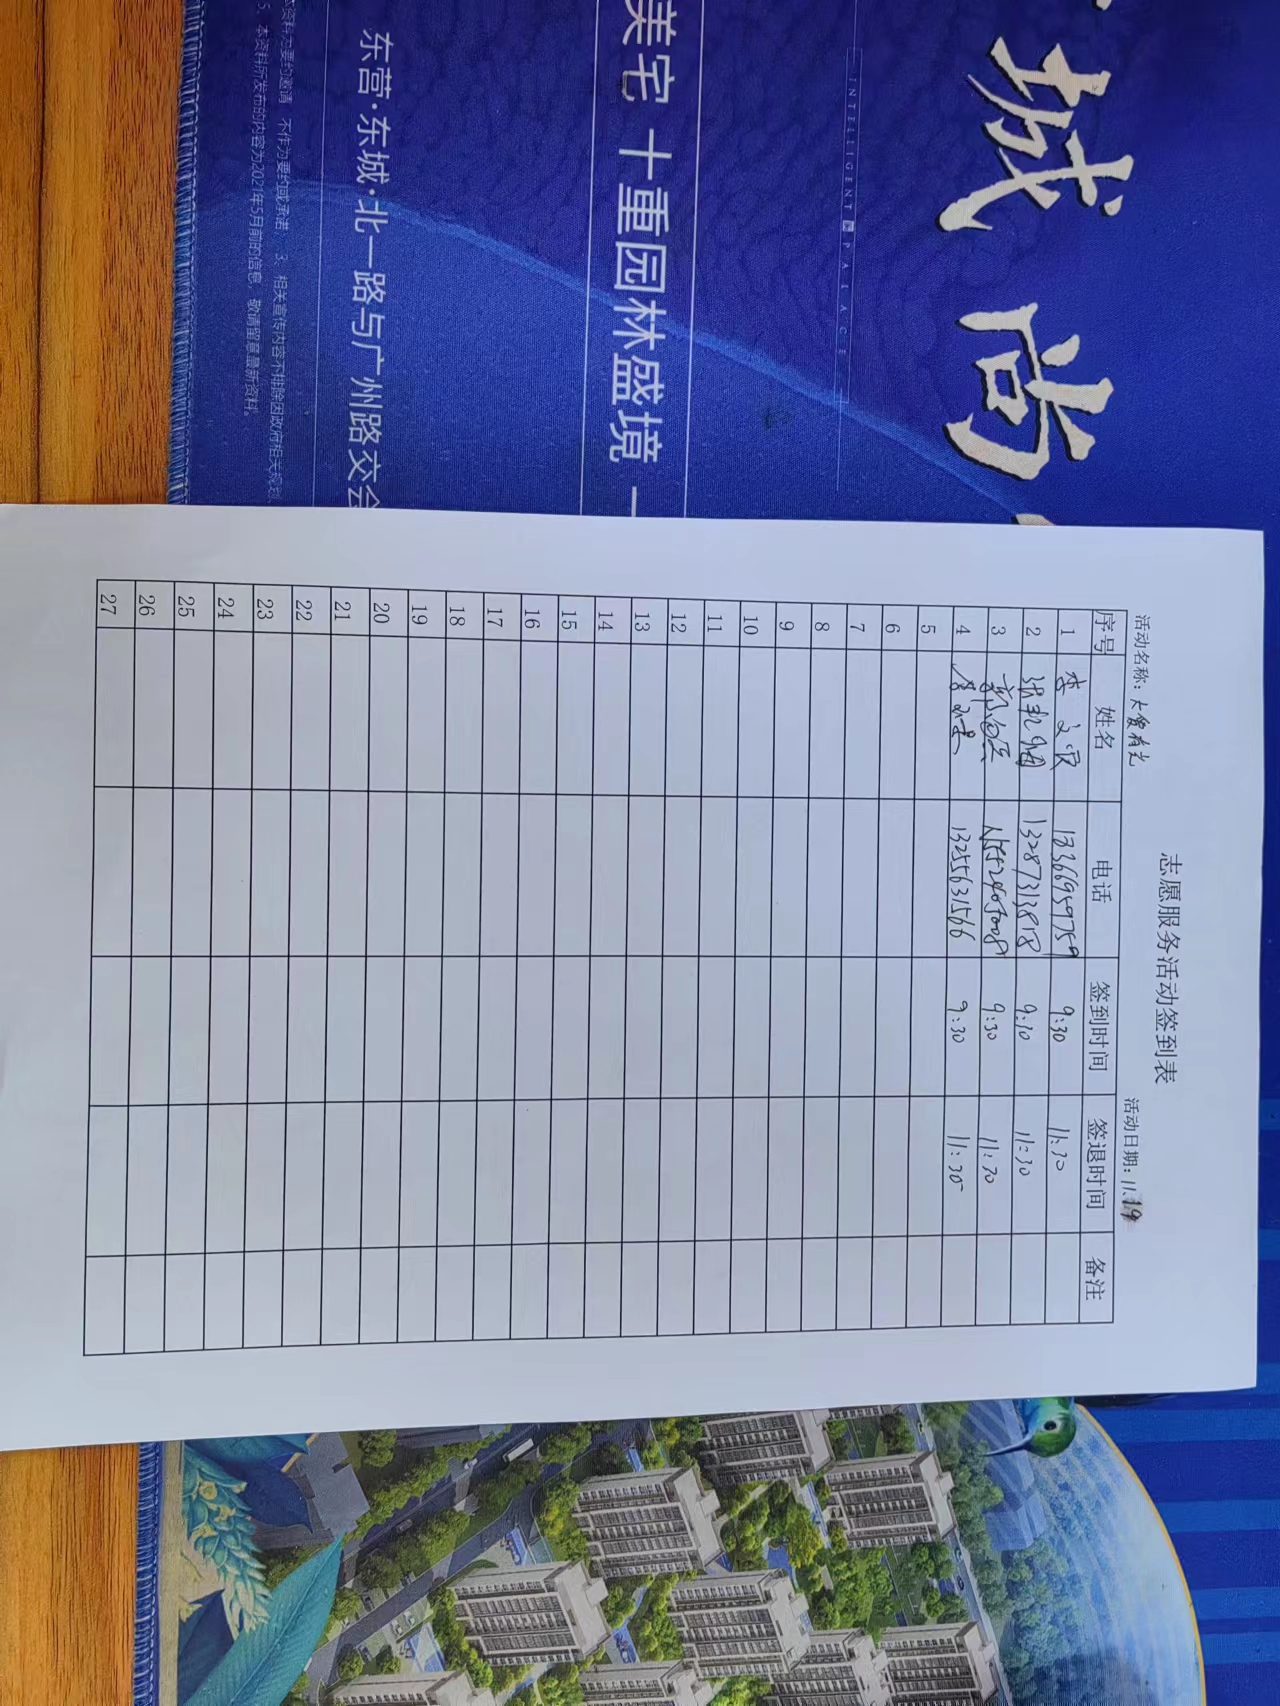 城 尚
INTELLIGENT PALACE
美宅 十重园林盛境 一
东营·东城·北一路与广州路交会
资料为要约邀请 不作为要约或承诺; 3、相关宣传内容不排除因政府相关规划
5、本资料所发布的内容为2021年5月前的信息, 敬请留意最新资料。
志愿服务活动签到表
活动名称: 大爱有光 活动日期: 11.19
序号 姓名 电话 签到时间 签退时间 备注
1 李 13366959759 9:30 11:30
2 13287313818 9:10 11:30
3 9:30 11:30
4 13255631566 9:30 11:30
5
6
7
8
9
10
11
12
13
14
15
16
17
18
19
20
21
22
23
24
25
26
27